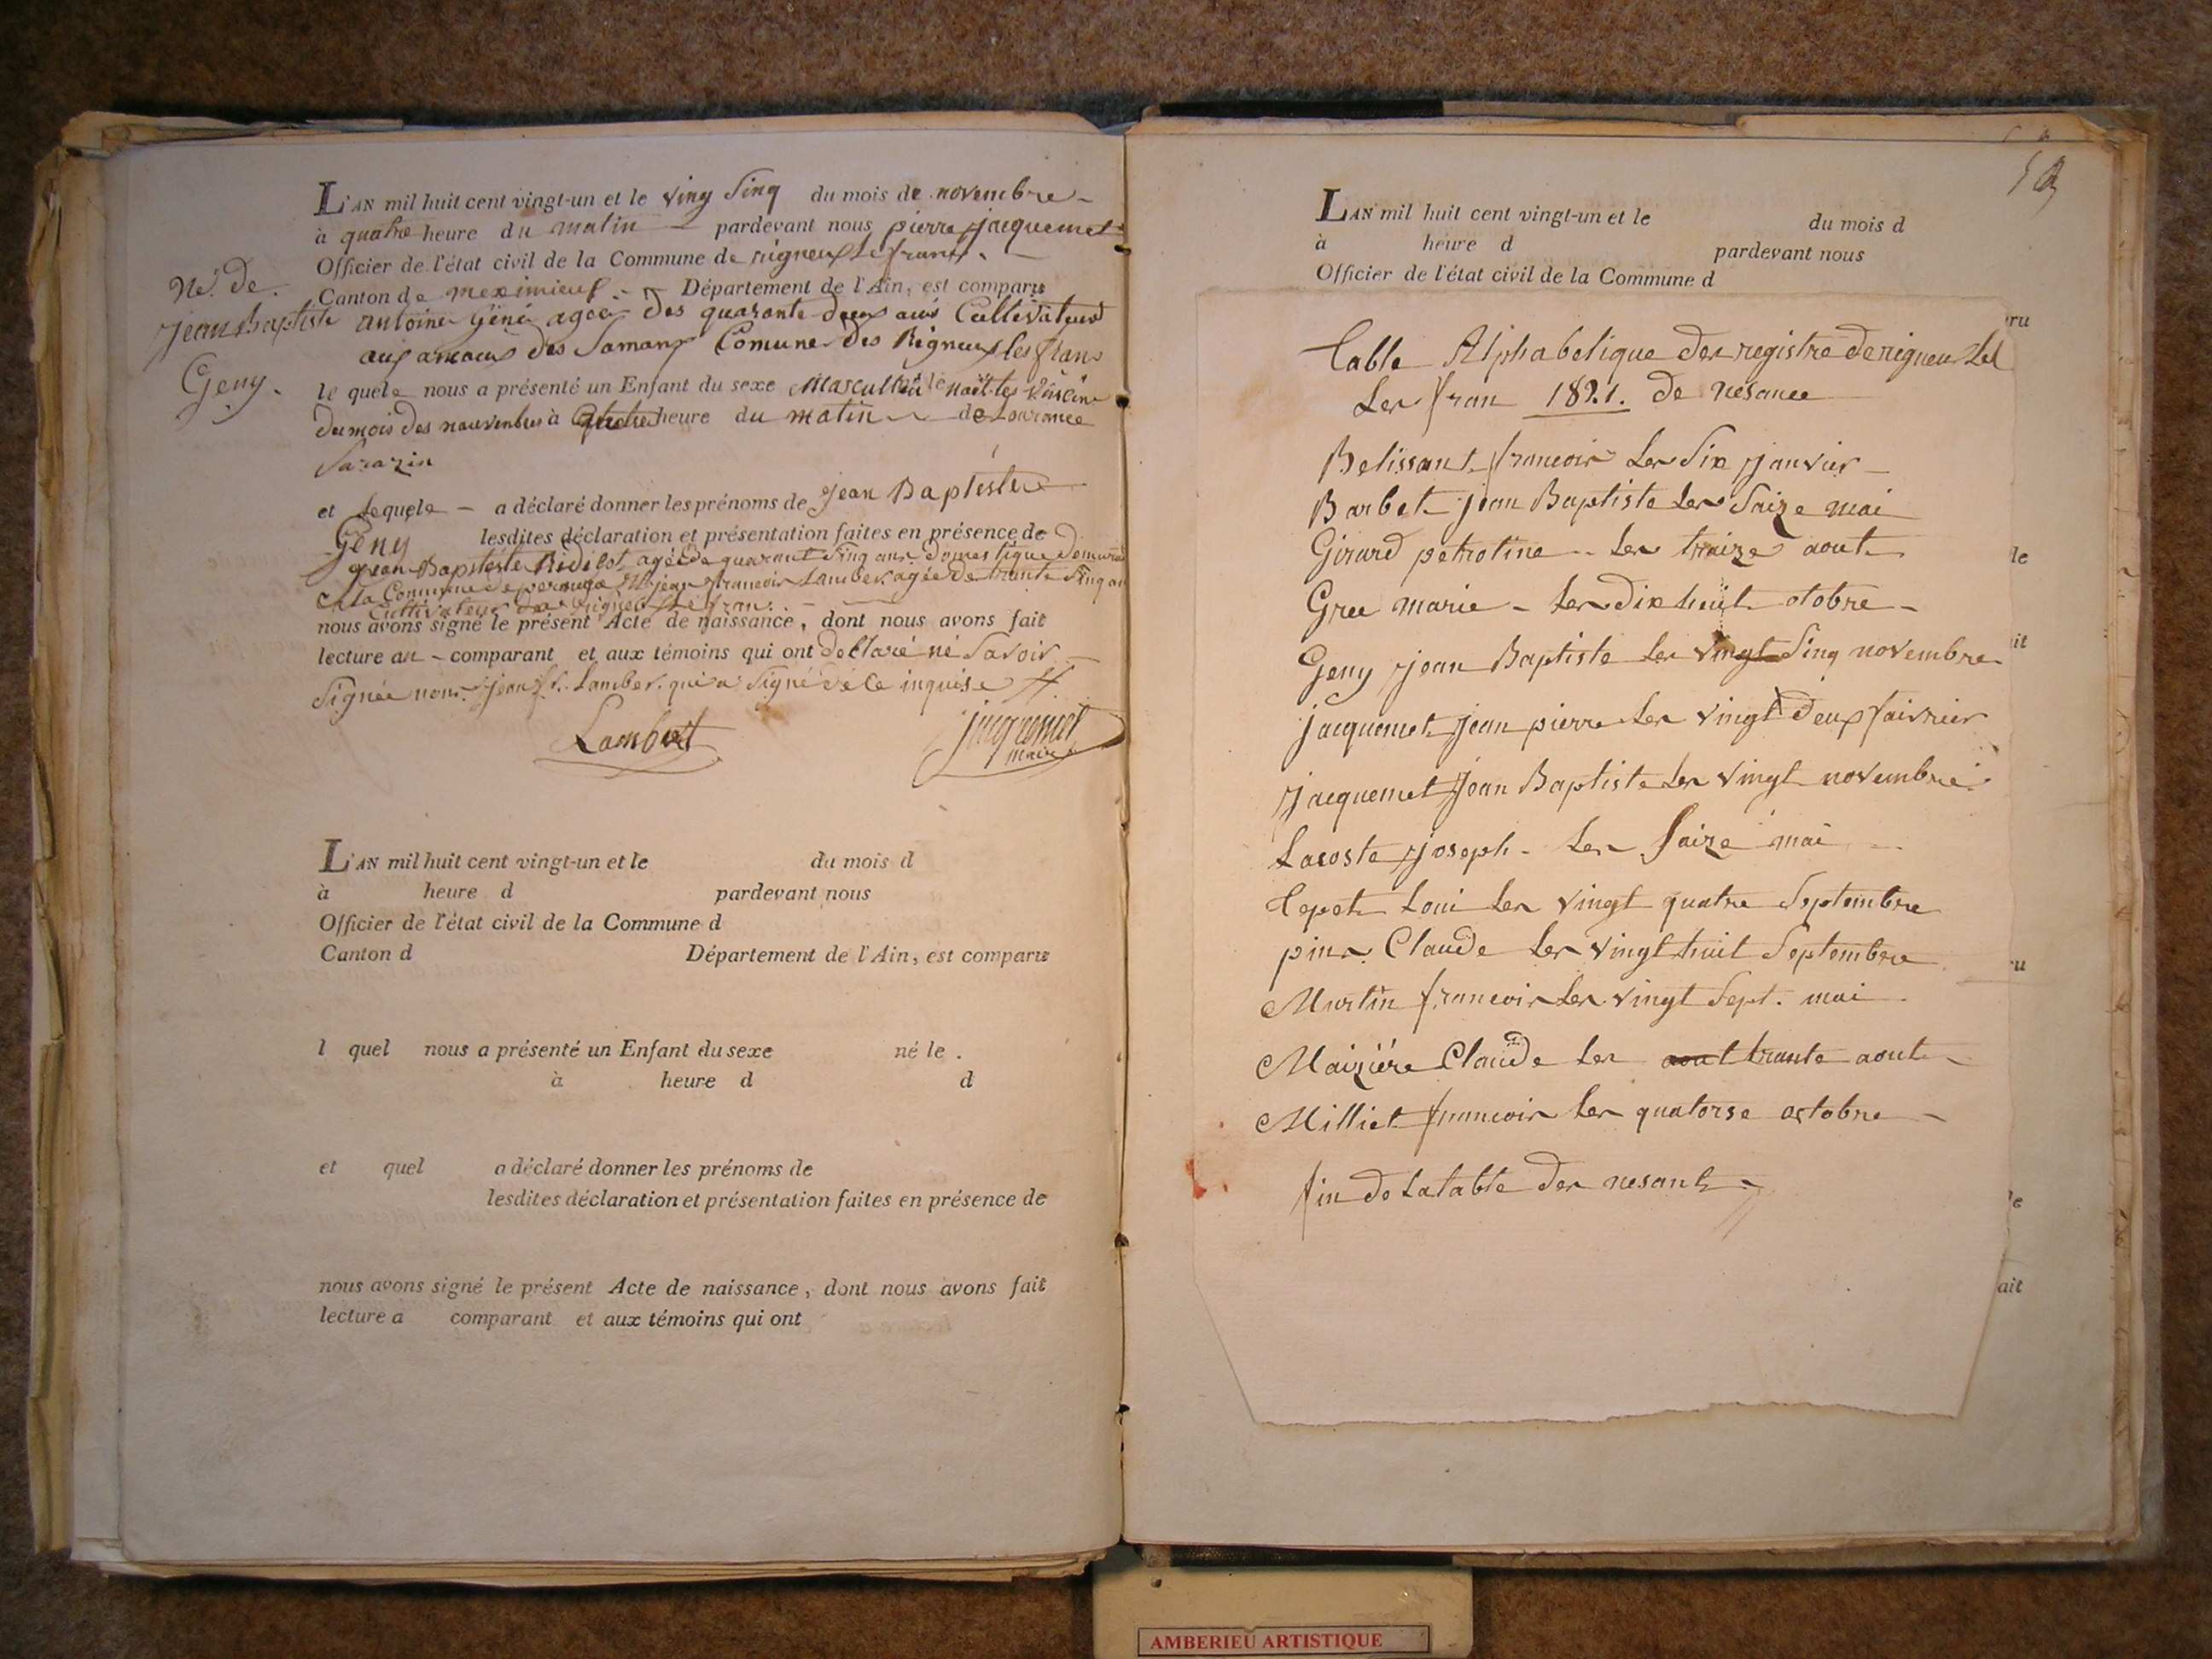 L'AN mil huit cent vingt-un et le ving Sinq du mois de novembre
à quatre heure du matin pardevant nous pierre jacquemet
Officier de l'état civil de la Commune de rigneux Le franc.
Canton de meximieux Département de l'Ain, est comparu
Né. de.
jean baptiste
Geny.
antoine Géni agée des quarante deux ans Cultivateur
Comune des Rigneux les fran
le quele nous a présenté un Enfant du sexe Masculin né le
du mois des nouvenbre à quatre heure du matin de
Sarazin
et Lequele a déclaré donner les prénoms de jean Baptiste
Geny lesdites déclaration et présentation faites en présence de
jean Baptiste agée de quarant sinq ans domestique
a la Commune de perouge et jean francois Lamber agée de trante sinq an
Cultivateur de Rigneu Le fran.
nous avons signé le présent Acte de naissance, dont nous avons fait
lecture au comparant et aux témoins qui ont déclaré né Savoir
Signée nons jean f. Lamber. qui a Signé de ce inquise
Lambert
jacquemet
maire
L'AN mil huit cent vingt-un et le du mois d
à heure d pardevant nous
Officier de l'état civil de la Commune d
Canton d Département de l'Ain, est comparu
l quel nous a présenté un Enfant du sexe né le .
à heure d d
et quel a déclaré donner les prénoms de
lesdites déclaration et présentation faites en présence de
nous avons signé le présent Acte de naissance, dont nous avons fait
lecture a comparant et aux témoins qui ont
L'AN mil huit cent vingt-un et le du mois d
à heure d pardevant nous
Officier de l'état civil de la Commune d
ru
Table Alphabetique der registre de rigneu Lel
Ler fran 1821. de nesance
Belissant francoir Ler Six janvier
Barbet jean Baptiste Ler Saize mai
Girard petrotine Ler traize aout
le
Gree marie Ler dix huit otobre
Geny jean Baptiste Ler vingt Sinq novembre
it
jacquemet jean pierre Ler vingt deux faivrier
jacquemet jean Baptiste Ler vingt novembre
Lacoste joseph Ler Saize mai
Tepet Loui Ler vingt quatre Septembre
pin Claude Ler vingt huit Septembre
ru
Martin francoir Ler vingt Sept. mai
Maiziére Claude Ler aout trante aout
Milliet francoir Ler quatorse octobre
fin de La table der nesant
le
ait
AMBERIEU ARTISTIQUE